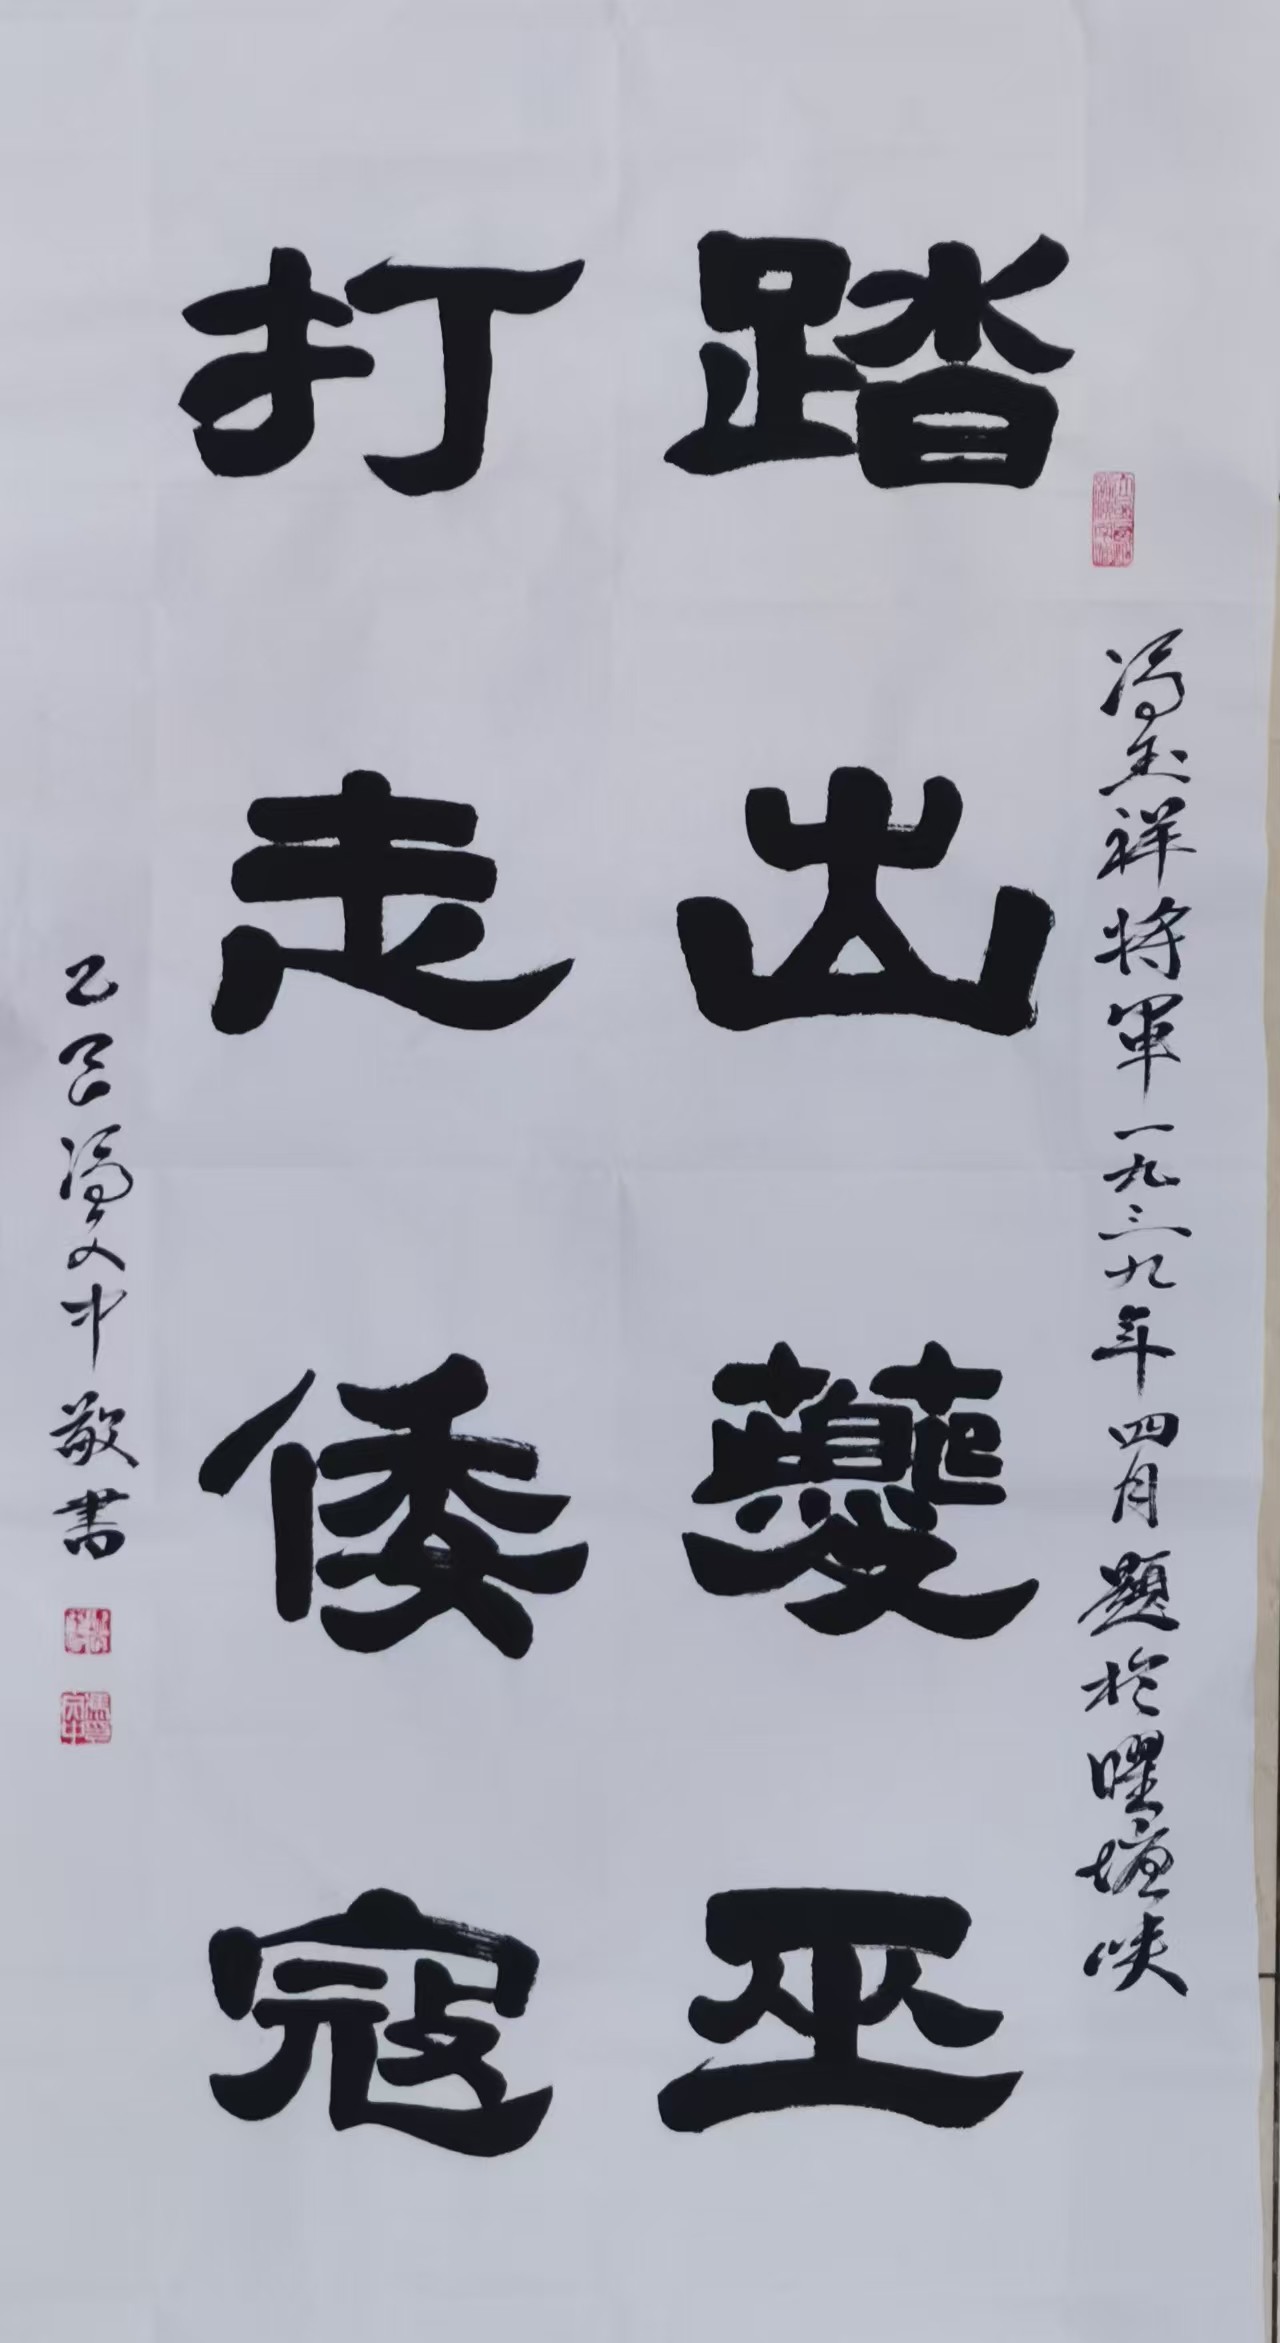 冯玉祥将軍一九三九年四月题於瞿塘峡
踏出夔巫
打走倭寇
乙巳冯文中敬書